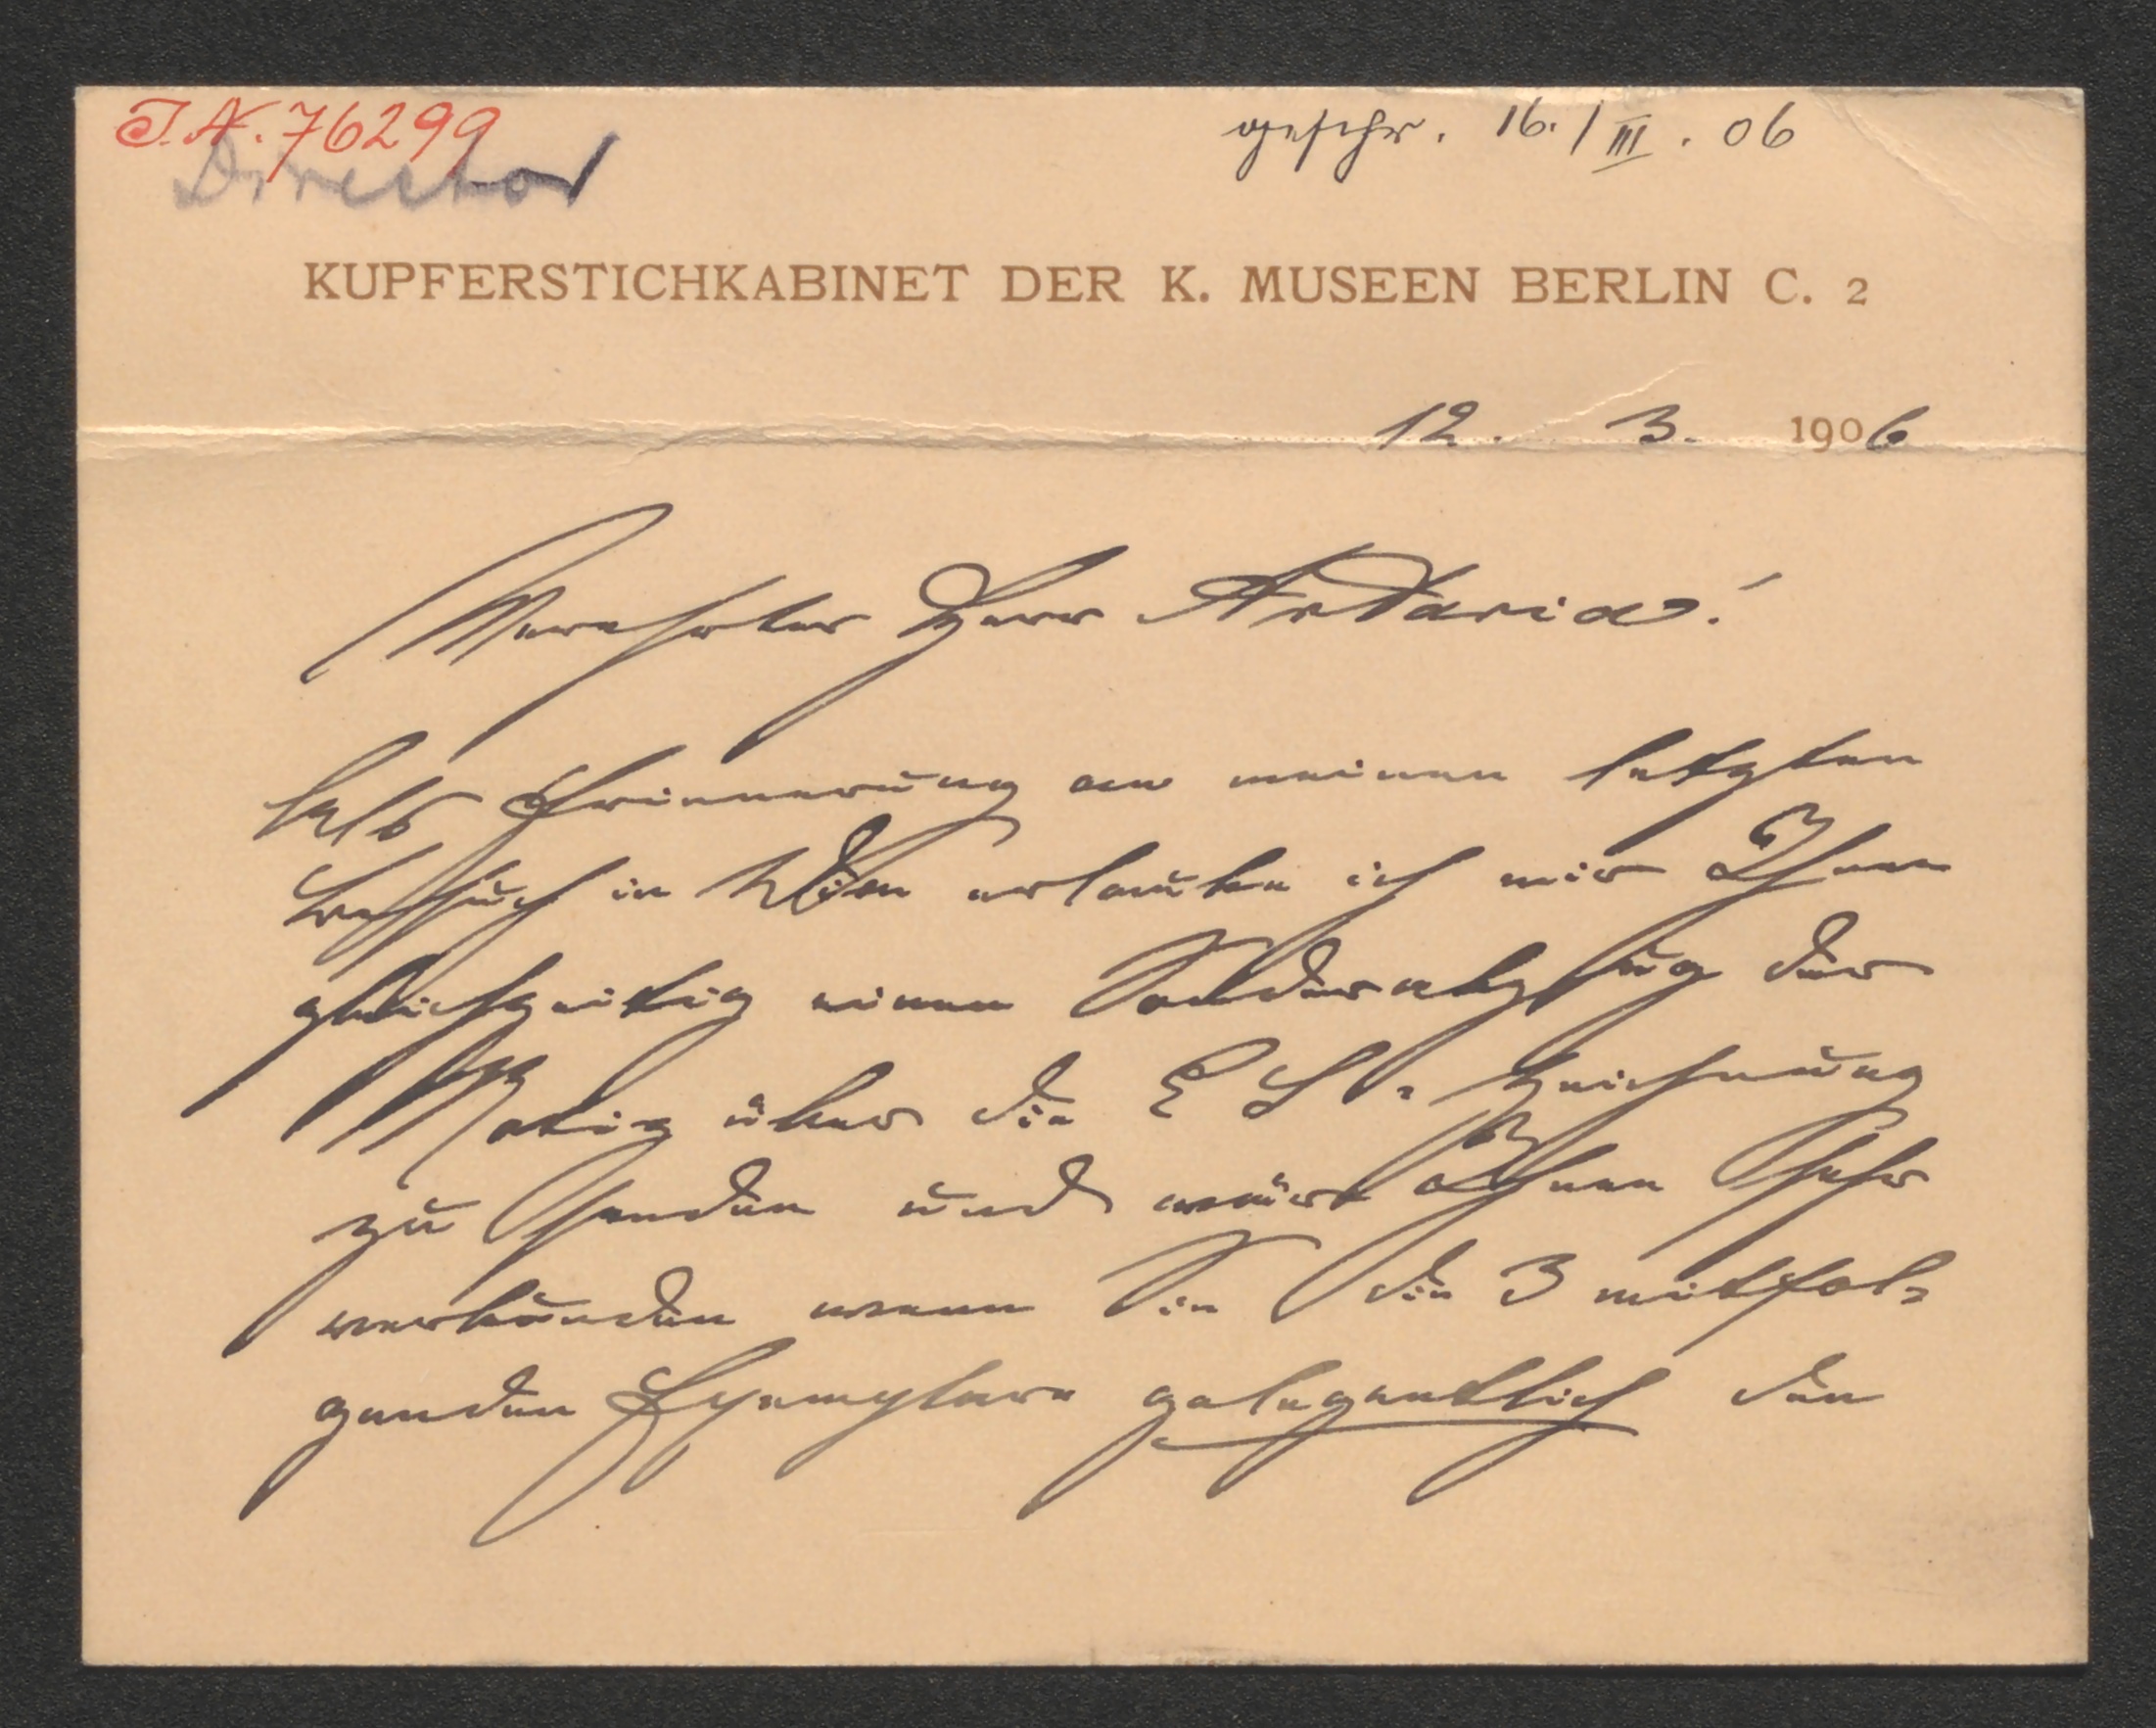 I.N. 76299
Director
geschr. 16./III. 06
KUPFERSTICHKABINET DER K. MUSEEN BERLIN C. 2
12. 3. 1906
Verehrter Herr Artaria!
Als Erinnerung an meinen letzten
Besuch in Wien erlaube ich mir Ihnen
gleichzeitig einen Sonderabzug der
Notiz über die ES-Zeichnung
zu senden und wäre Ihnen sehr
verbunden wenn Sie die 3 mitfol-
genden Exemplare gelegentlich den